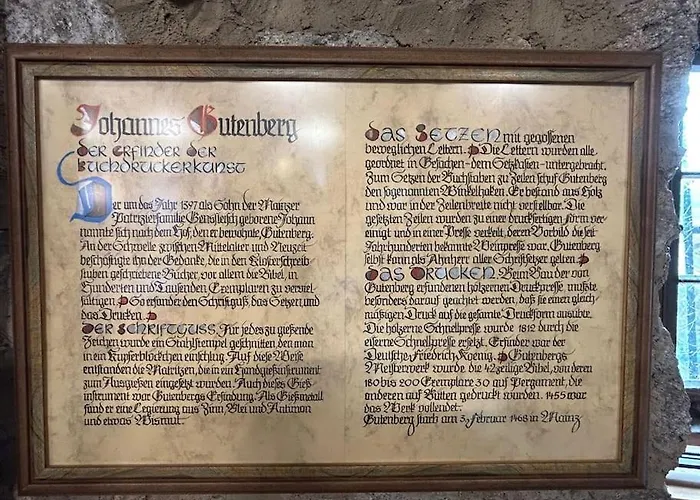 Johannes Gutenberg
DER ERFINDER DER
BUCHDRUCKERKUNST
Der um das Jahr 1397 als Sohn der Mainzer
Patrizierfamilie Gensfleisch geborene Johann
nannte sich nach dem Hof, den er bewohnte, Gutenberg.
An der Schwelle zwischen Mittelalter und Neuzeit
beschäftigte ihn der Gedanke, die in Klosterschreib-
stuben geschriebene Bücher, vor allem die Bibel, in
Hunderten und Tausenden Exemplaren zu verviel-
fältigen. So erfand er den Schriftguß, das Setzen und
das Drucken.
DER SCHRIFTGUSS. Für jedes zu gießende
Zeichen wurde ein Stahlstempel geschnitten, den man
in ein Kupferblöckchen einschlug. Auf diese Weise
entstanden die Matrizen, die in ein Handgießinstrument
zum Ausgießen eingesetzt wurden. Auch dieses Gieß-
instrument war Gutenbergs Erfindung. Als Gießmetall
fand er eine Legierung aus Zinn, Blei und Antimon
und etwas Wismut.
DAS SETZEN mit gegossenen
beweglichen Lettern. Die Lettern wurden alle,
geordnet in Gefachen-dem Setzkasten-untergebracht.
Zum Setzen der Buchstaben zu Zeilen schuf Gutenberg
den sogenannten Winkelhaken. Er bestand aus Holz
und war in der Zeilenbreite nicht verstellbar. Die
gesetzten Zeilen wurden zu einer druckfertigen Form ver-
einigt und in einer Presse verkeilt, deren Vorbild die seit
Jahrhunderten bekannte Weinpresse war. Gutenberg
selbst kann als Ahnherr aller Schriftsetzer gelten.
DAS DRUCKEN. Beim Bau der von
Gutenberg erfundenen hölzernen Druckpresse mußte
besonders darauf geachtet werden, daß sie einen gleich-
mäßigen Druck auf die gesamte Druckform ausübte.
Die hölzerne Schnellpresse wurde 1812 durch die
eiserne Schnellpresse ersetzt. Erfinder war der
Deutsche Friedrich Koenig. Gutenbergs
Meisterwerk wurde die 42zeilige Bibel, von deren
180 bis 200 Exemplare 30 auf Pergament, die
anderen auf Bütten gedruckt wurden. 1455 war
das Werk vollendet.
Gutenberg starb am 3. Februar 1468 in Mainz